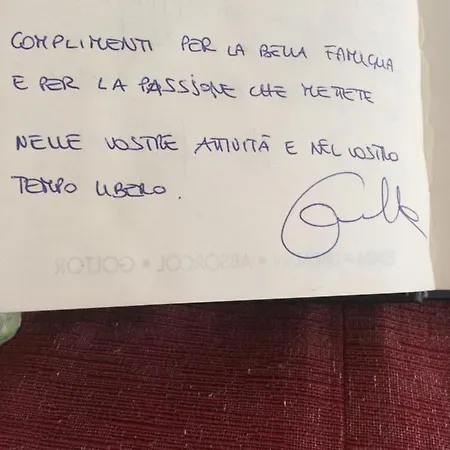 COMPLIMENTI PER LA BELLA FAMIGLIA
E PER LA PASSIONE CHE METTETE
NELLE VOSTRE ATTIVITÀ E NEL VOSTRO
TEMPO LIBERO.
ABSORCOL • GOLTOR